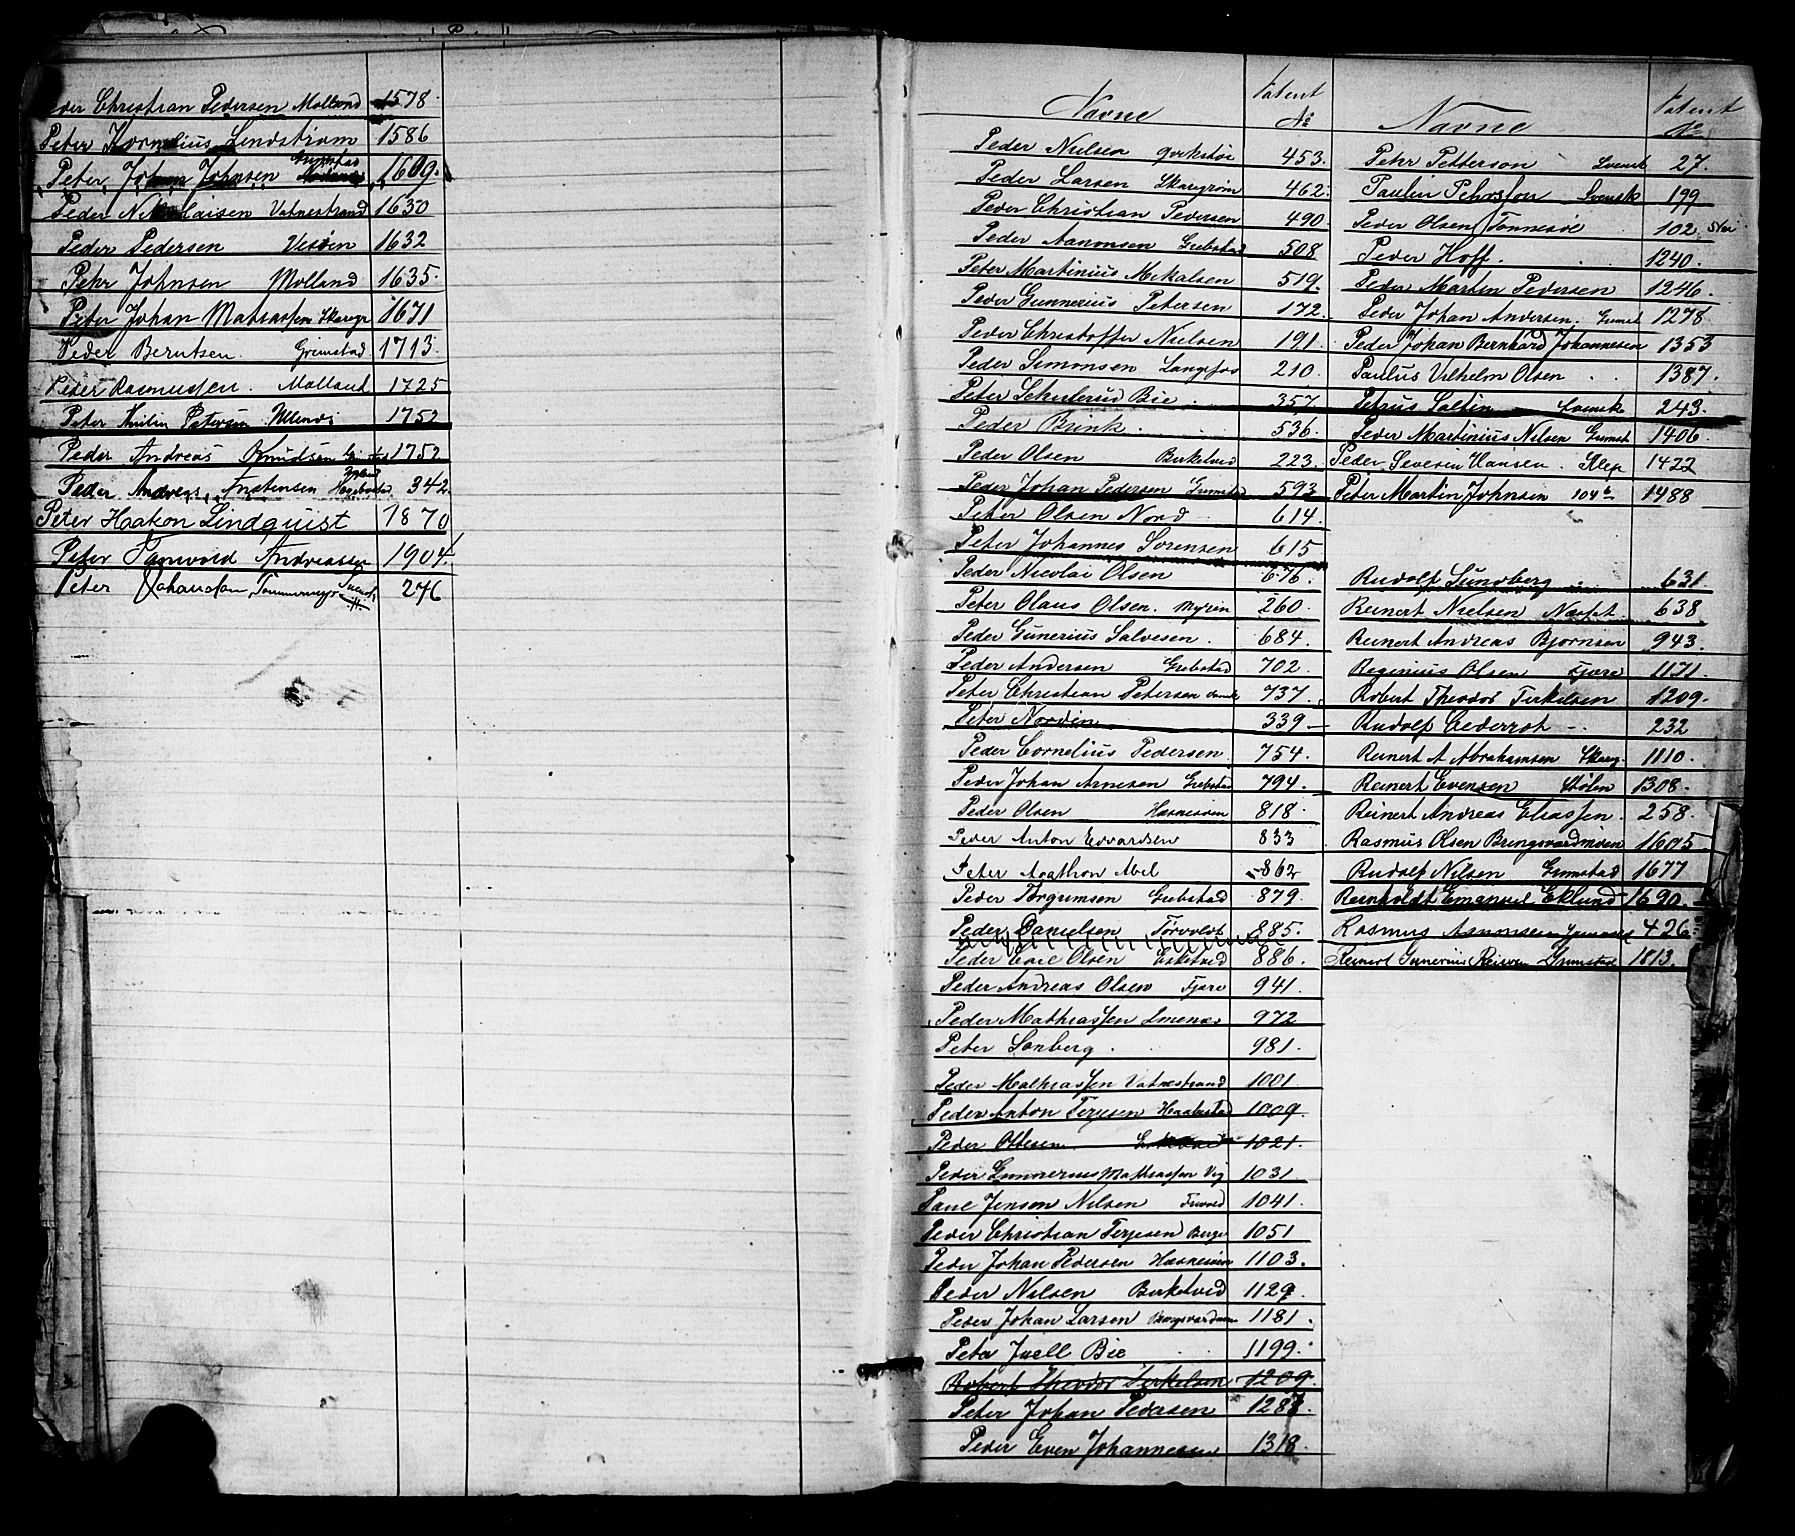 Peder Christian Pedersen Molland 1578
Peter Kornelius Lindstrøm 1586
Peter Johan Johnsen Grimstad 1609.
Peder Nikolaisen Vatnestrand 1630
Peder Pedersen Vessøen 1632
Pehr Johnsen Molland 1635.
Peter Johan Mathiassen Skaregr 1671
Peder Berntsen. Grimstad 1713.
Peder Rasmussen. Molland 1725
Peter Emilin Petersen 1752
Peder Andreas Knudsen Grimstad 1752
Peder Andreas Anstensen 342.
Peter Haakon Lindquist 1870
Peter Tarwold Andreassen 1904.
Peter Johansson, Tønnesmyr 246
Navne Patent No
Peder Nielsen 453.
Peder Larsen Skaregrøm 462.
Peder Christian Pedersen 490.
Peder Aanonsen Grebstad 508
Peter Martinius Mikalsen 519.
Peder Gunnerius Petersen 172.
Peder Christoffer Nielsen 191.
Peder Simonsen Langfos 210.
Peter Schulerud Bie. 357
Peder Brink. 536.
Peder Olsen Birketved 223.
Peder Johan Pedersen Grimstad 593
Peter Olsen Nord 614.
Peter Johannes Sørensen 615
Peder Nicolai Olsen 676.
Peter Olaus Olsen. Myren 260.
Peder Gunerius Salvesen. 684.
Peder Andersen Grebstad 702.
Peter Christian Petersen dansk 737.
Peter Nordin 339
Peder Cornelius Pedersen. 754.
Peder Johan Arnesen Grebstad 794.
Peder Olsen Hasnesøen 818.
Peder Anton Edvardsen 833
Peter Agathon Abel 862
Peder Torgrimsen Grebstad 879.
Peder Danielsen Torvolds 885.
Peder Emil Olsen Esketved 886.
Peder Andreas Olsen Fjære 941.
Peder Mathiassen Smenæs 972
Peter Sonberg. 981.
Peder Mathiassen Vatnestrand 1001
Peder Anton Terjesen Haabestad 1009.
Peder Olsen 1021.
Peder Gunnerius Mathiassen Vig 1031
Paul Jenson Nilsen 1041.
Peder Christian Terjesen Berge 1051
Peder Johan Pedersen Hasnesøen 1103.
Peder Nilsen Birketved 1129.
Peder Johan Larsen Bringsværdmoen 1181.
Peter Juell Bie 1199.
Robert Theodor Terkelsen 1209.
Peter Johan Pedersen 1287.
Peder Even Johannessen 1318.
Navne Patent No
Pehr Petterson Svensk 27.
Paulin Pehrsson Svensk 199
Peder Olsen Tønnesøl 102
Peder Hoff. 1240.
Peder Martin Pedersen 1246.
Peder Johan Andersen. Grimst 1278
Peder Johan Bernhard Johannesen 1353
Paulus Vilhelm Olsen 1387.
Petrus Saltin Svensk 243.
Peder Martinius Nilsen Grimst 1406.
Peder Severin Hansen. Klep 1422
Peter Martin Johnsen 1488
Rudolf Sundberg 631
Reinert Nielsen Næsset. 638
Reinert Andreas Bjørnsen 943.
Reginius Olsen Fjære 1171.
Robert Theodor Terkelsen 1209.
Rudolf Cederrot 232
Reinert A Abrahamsen Skareg. 1110.
Reinert Evensen Stølen 1308.
Reinert Andreas Eliassen. 258.
Rasmus Olsen Bringsværdmoen 1605
Rudolf Nilsen Grimstad 1677
Reinholdt Emanuel Eklund 1690.
Rasmus Asmonsen 426.
Reinert Gunerius Reiersen Grimstad 1813.